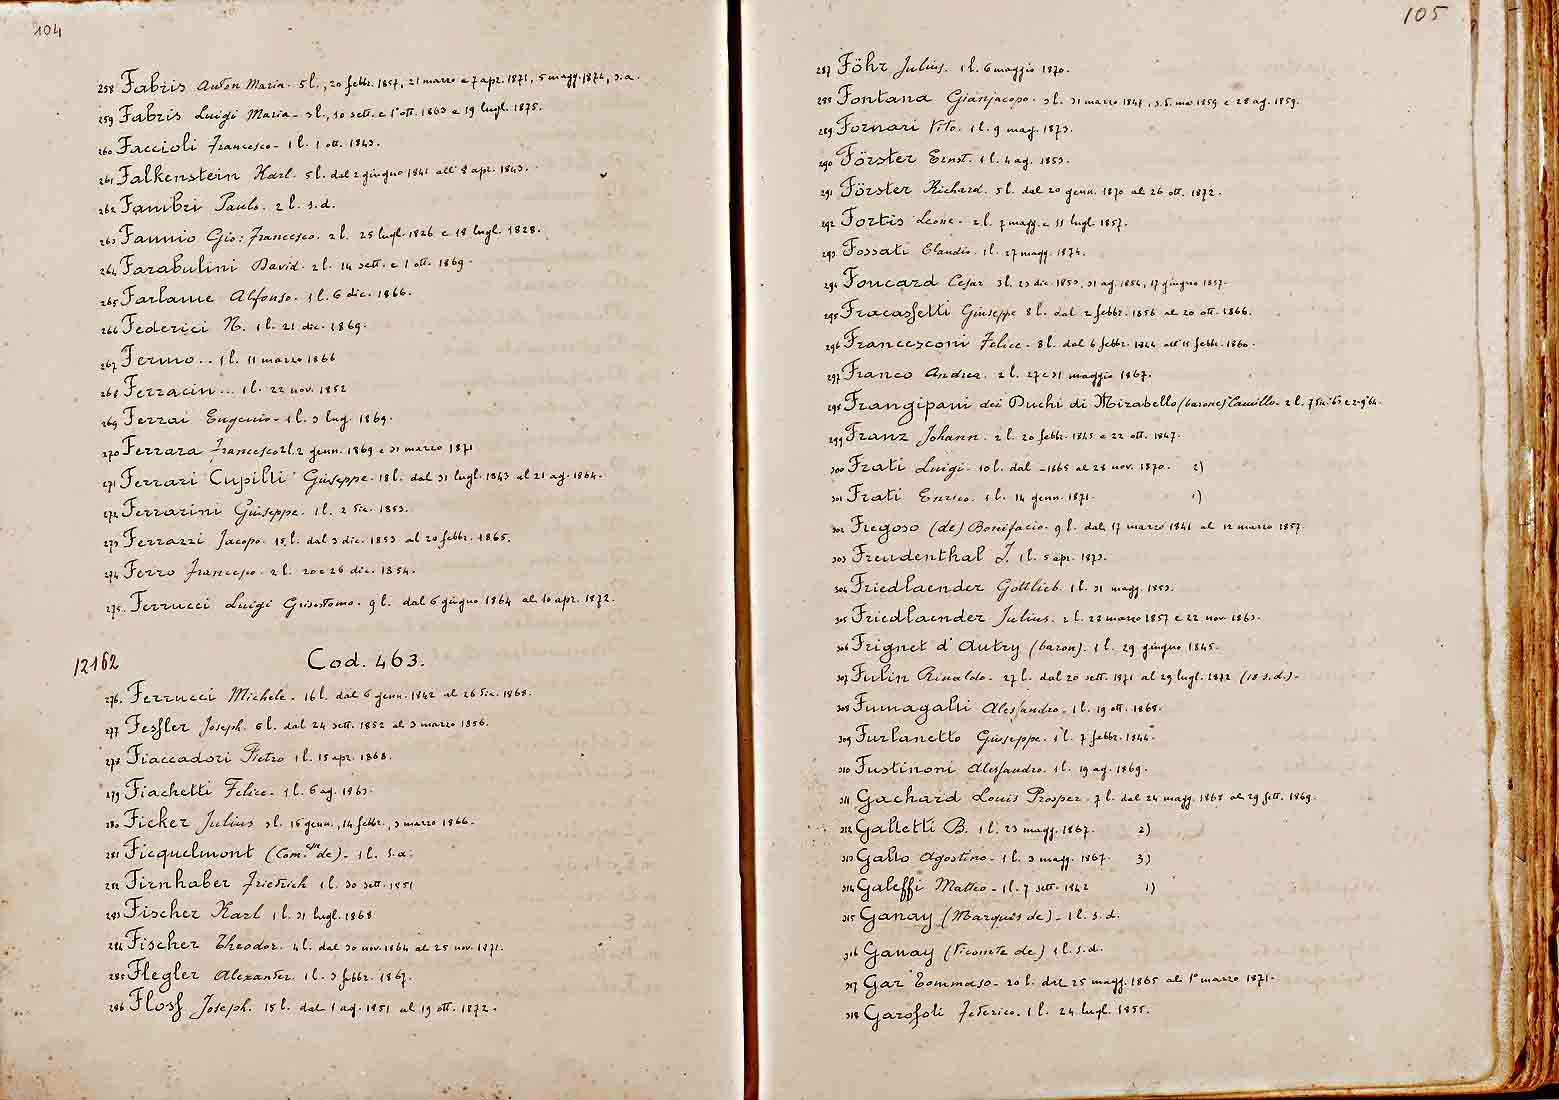 104
258 Fabris Anton Maria. 5 l., 20 febbr. 1857, 21 marzo e 7 apr. 1871, 5 magg. 1872, s.a.
259 Fabris Luigi Maria - 3 l., 10 sett. e 1° ott. 1863 e 19 lugl. 1875.
260 Faccioli Francesco - 1 l. 1 ott. 1843.
261 Falkenstein Karl. 5 l. dal 2 giugno 1841 all' 8 apr. 1843.
262 Fambri Paulo. 2 l. s.d.
263 Fannio Gio: Francesco. 2 l. 25 lugl. 1826 e 18 lugl. 1828.
264 Farabulini David. 2 l. 14 sett. e 1 ott. 1869.
265 Farlame Alfonso. 1 l. 6 dic. 1866.
266 Federici N. 1 l. 21 dic. 1869.
267 Fermo .. 1 l. 11 marzo 1866
268 Ferracin ... 1 l. 22 nov. 1852
269 Ferrai Eugenio - 1 l. 3 lug. 1869.
270 Ferrara Francesco 2 l. 2 genn. 1869 e 31 marzo 1871
271 Ferrari Cupilli Giuseppe. 18 l. dal 31 lugl. 1843 al 21 ag. 1864.
272 Ferrarini Giuseppe. 1 l. 2 dic. 1853.
273 Ferrazzi Jacopo. 15 l. dal 3 dic. 1853 al 20 febbr. 1865.
274 Ferro Francesco. 2 l. 20 e 26 dic. 1854.
275. Ferrucci Luigi Grisostomo. 9 l. dal 6 giugno 1864 al 10 apr. 1872.
12162 Cod. 463.
276. Ferrucci Michele - 16 l. dal 6 genn. 1842 al 26 dic. 1868.
277 Fessler Joseph. 6 l. dal 24 sett. 1852 al 3 marzo 1856.
278 Fiaccadori Pietro 1 l. 15 apr. 1868.
279 Fiachetti Felice - 1 l. 6 ag. 1863.
280 Ficker Julius 3 l. 16 genn., 14 febbr., 3 marzo 1866.
281 Ficquelmont (Com.sse de) - 1 l. s.a.
282 Firnhaber Friedrich 1 l. 30 sett. 1851
283 Fischer Karl 1 l. 31 lugl. 1868
284 Fischer Theodor. 4 l. dal 30 nov. 1864 al 25 nov. 1871.
285 Flegler Alexander. 1 l. 3 febbr. 1867.
286 Floss Joseph. 15 l. dal 1 ag. 1851 al 19 ott. 1872.
105
287 Föhr Julius. 1 l. 6 maggio 1870.
288 Fontana Gianjacopo. 3 l. 31 marzo 1847, 1859 e 28 ag. 1859.
289 Fornari Vito. 1 l. 9 mag. 1873.
290 Förster Ernst. 1 l. 4 ag. 1853.
291 Förster Richard. 5 l. dal 20 genn. 1870 al 26 ott. 1872.
292 Fortis Leone - 2 l. 7 magg. e 11 lugl. 1857.
293 Fossati Claudio. 1 l. 27 magg. 1874.
294 Foucard Cesar 3 l. 23 dic. 1853, 31 ag. 1854, 17 giugno 1857.
295 Fracassetti Giuseppe 8 l. dal 2 febbr. 1856 al 20 ott. 1866.
296 Francesconi Felice - 8 l. dal 6 febbr. 1844 all' 11 febbr. 1860.
297 Franco Andrea. 2 l. 27 e 31 maggio 1867.
298 Frangipani dei Duchi di Mirabello (barone) Camillo - 2 l.
299 Franz Johann. 2 l. 20 febbr. 1845 e 22 ott. 1847.
300 Frati Luigi - 10 l. dal - 1865 al 28 nov. 1870. 2)
301 Frati Enrico. 1 l. 14 genn. 1871. 1)
302 Fregoso (de) Bonifacio. 9 l. dal 17 marzo 1841 al 12 marzo 1857.
303 Freudenthal J. 1 l. 5 apr. 1873.
304 Friedlaender Gottlieb. 1 l. 31 magg. 1853.
305 Friedlaender Julius. 2 l. 28 marzo 1857 e 22 nov. 1863.
306 Frignet d'Autry (baron). 1 l. 29 giugno 1845.
307 Fulin Rinaldo. 27 l. dal 20 sett. 1871 al 29 lugl. 1872 (18 s.d.).
308 Fumagalli Alessandro. 1 l. 19 ott. 1868.
309 Furlanetto Giuseppe. 1 l. 7 febbr. 1844.
310 Fustinoni Alessandro. 1 l. 19 ag. 1869.
311 Gachard Louis Prosper. 7 l. dal 24 magg. 1868 al 29 sett. 1869.
312 Galletti B. 1 l. 23 magg. 1867. 2)
313 Gallo Agostino - 1 l. 3 magg. 1867. 3)
314 Galeffi Matteo - 1 l. 7 sett. 1842 1)
315 Ganay (Marquis de) - 1 l. s.d.
316 Ganay (Vicomte de) 1 l. s.d.
317 Gar Tommaso - 20 l. dal 25 magg. 1865 al 1° marzo 1871.
318 Garofoli Federico. 1 l. 24 lugl. 1855.